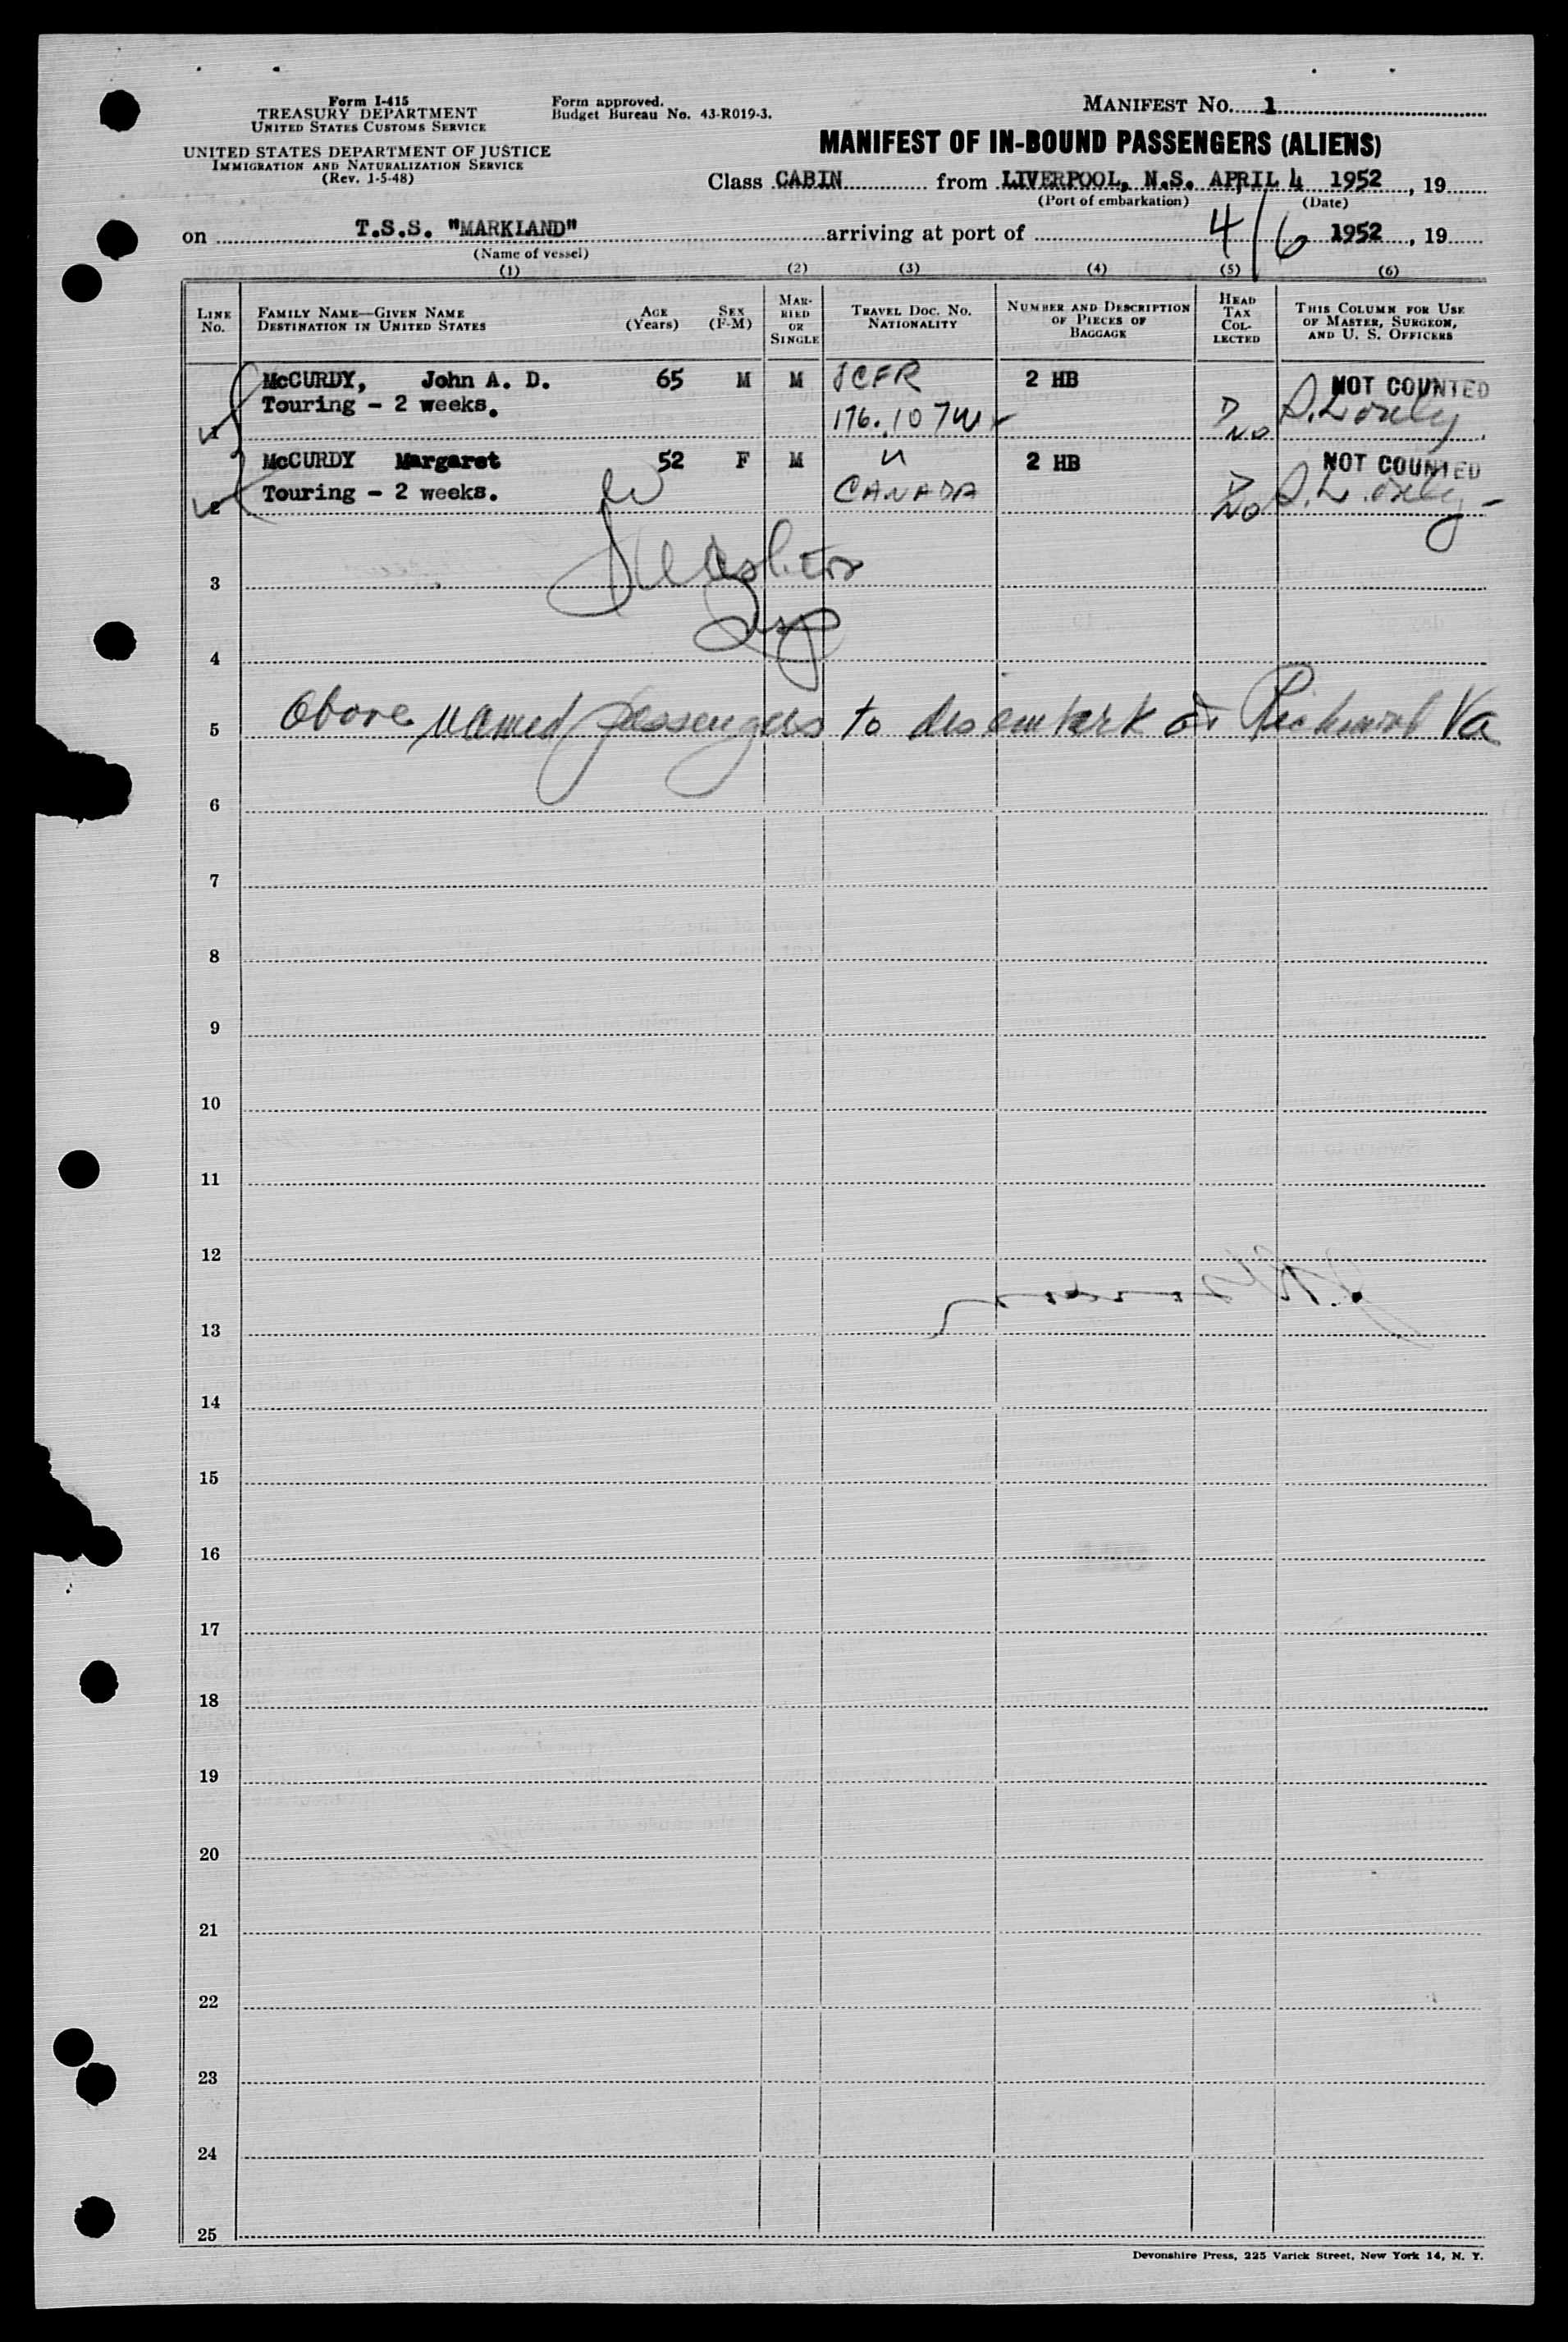 Form I-415
TREASURY DEPARTMENT
UNITED STATES CUSTOMS SERVICE
UNITED STATES DEPARTMENT OF JUSTICE
IMMIGRATION AND NATURALIZATION SERVICE
(Rev. 1-5-48)
Form approved.
Budget Bureau No. 43-R019-3.
MANIFEST NO. 1
MANIFEST OF IN-BOUND PASSENGERS (ALIENS)
Class CABIN from LIVERPOOL, N.S. APRIL 4 1952, 19
(Port of embarkation) (Date)
on T.S.S. "MARKLAND" arriving at port of 4/6 1952, 19
(Name of vessel)
(1) (2) (3) (4) (5) (6)
LINE NO.
FAMILY NAME—GIVEN NAME
DESTINATION IN UNITED STATES
AGE (Years)
SEX (F-M)
MARRIED OR SINGLE
TRAVEL DOC. NO.
NATIONALITY
NUMBER AND DESCRIPTION OF PIECES OF BAGGAGE
HEAD TAX COLLECTED
THIS COLUMN FOR USE OF MASTER, SURGEON, AND U. S. OFFICERS
McCURDY, John A. D. 65 M M 2 HB NOT COUNTED
Touring - 2 weeks. 176.107
1 NO
McCURDY Margaret 52 F M " 2 HB NOT COUNTED
Touring - 2 weeks. CANADA
2 NO
3
4
5 Above named passengers to disembark at Richmond Va
6
7
8
9
10
11
12
13
14
15
16
17
18
19
20
21
22
23
24
25
Devonshire Press, 225 Varick Street, New York 14, N. Y.